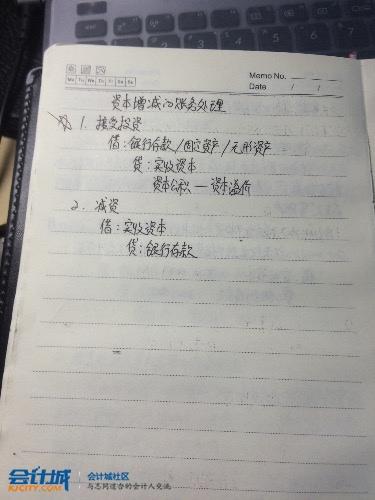 Memo No.
Mo Tu We Th Fr Sa Su
Date / /
资本增减的账务处理
1. 接受投资
借:银行存款/固定资产/无形资产
贷:实收资本
资本公积—资本溢价
2. 减资
借:实收资本
贷:银行存款
会计城
KJCITY.COM
会计城社区
与志同道合的会计人交流